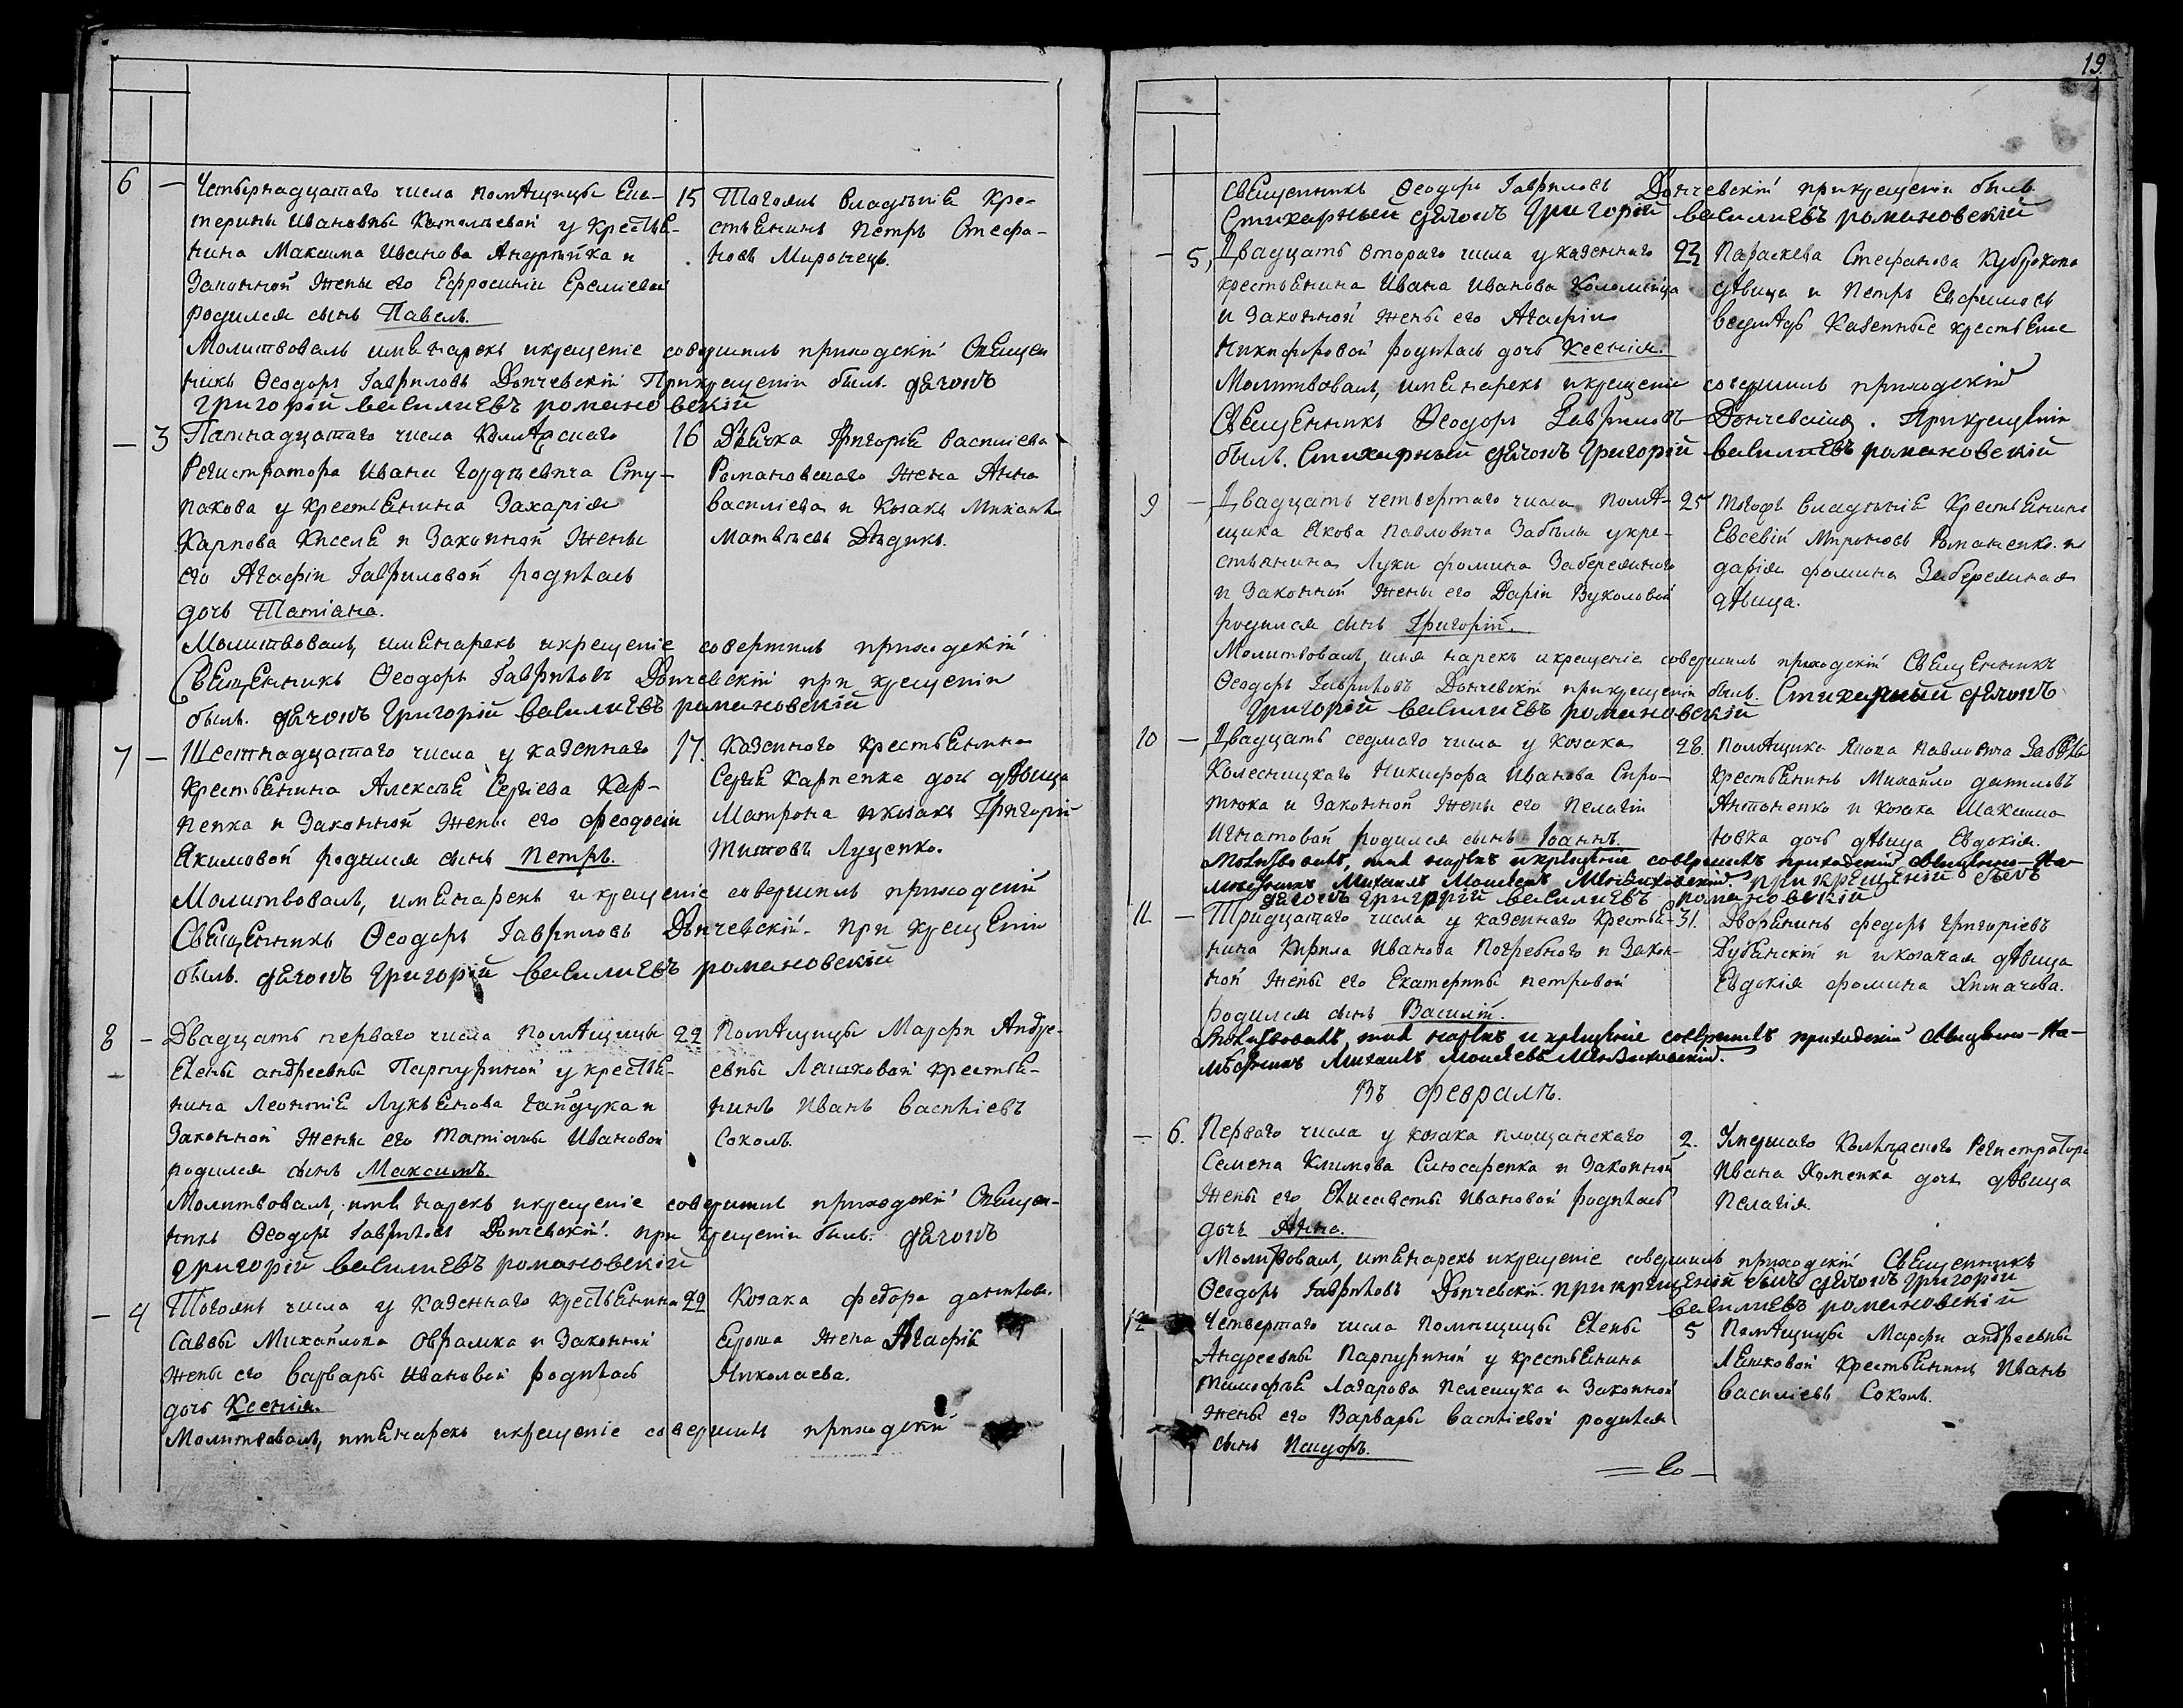 19.
6 — Четвернадцатаго числа помѣщицы Ека-
терины Ивановны у крестья-
нина Максима Иванова Андрѣйка и
Законной Жены его Ефросиніи Еремѣевой
родился сынъ Павелъ.
15 Тогожъ владѣнія Кре-
стьянинъ Петръ Стефа-
новъ Миронецъ.
Молитвовалъ имя нарекъ и крещеніе совершилъ приходскій Священ
никъ Ѳеодоръ Гавриловъ Дончевскій При крещеніи былъ. дячокъ
григорій василиевъ романовскій
— 3 Пятнадцатаго числа Колѣжскаго
Регистратора Ивана Гордѣевича Сту-
пакова у крестьянина Захарія
Карпова Киселя и Законной Жены
его Агафіи Гавриловой родилась
дочь Татіана.
16 Дьячка Григорія Василіева
Романовскаго Жена Анна
Василіева и Козакъ Михаилъ
Матвѣевъ Дѣдикъ.
Молитвовалъ, имя нарекъ и крещеніе совершилъ приходскій
Священникъ Ѳеодоръ Гавриловъ Дончевскій при крещеніи
былъ. дячокъ григорій василиевъ романовскій
7 — Шестнадцатаго числа у казеннаго
Крестьянина Алексѣя Сергіева Кар-
пенка и Законной Жены его Феодосіи
Якимовой родился сынъ Петръ.
17. Казенного крестьянина
Сергія Карпенка дочь дѣвица
Матрона и козакъ Григорій
Титовъ Луценко.
Молитвовалъ, имя нарекъ и крещеніе совершилъ приходскій
Священникъ Ѳеодоръ Гавриловъ Дончевскій. при крещеніи
былъ. дячокъ григорій василиевъ романовскій
8 — Двадцать перваго числа помѣщицы
Елены андреевны Парпуриной у крестья-
нина Леонтія Лукьянова Гайдука и
Законной Жены его Татіаны Ивановой
родился сынъ Максимъ.
22 Помѣщицы Марфы Андре-
евны Лашковой крестья-
нинъ Иванъ Василіевъ
Соколъ.
Молитвовалъ, имя нарекъ и крещеніе совершилъ приходскій Священ-
никъ Ѳеодоръ Гавриловъ Дончевскій. при крещеніи былъ. дячокъ
григорій василиевъ романовскій
— 4 Тогожъ числа у казеннаго крестьянина
Саввы Михайлова Оврамка и Законной
жены его Варвары Ивановой родилась
дочь Ксенія.
22 Козака Федора данилова
жена Агафія
Николаева.
Молитвовалъ, имя нарекъ и крещеніе совершилъ приходскій
Священникъ Ѳеодоръ Гавриловъ Дончевскій при крещеніи былъ.
Стихарный дячокъ григорій василиевъ романовскій
— 5, Двадцать втораго числа у казеннаго
крестьянина Ивана Иванова Коломійца
и Законной жены его Агафіи
Никифоровой родилась дочь Ксенія.
23 Параскева Стефанова
дѣвица и Петръ Евфимовъ
Казенные крестьяне
Молитвовалъ, имя нарекъ и крещеніе совершилъ приходскій
Священникъ Ѳеодоръ Гавриловъ Дончевскій. При крещеніи
былъ. Стихарный дячокъ григорій василиевъ романовскій
9 — Двадцать четвертаго числа помѣ-
щика Якова Павловича Забѣлы у кре-
стьянина Луки Фомина Забережного
и Законной Жены его Даріи Вуколовой
родился сынъ Григорій.
25 Тогожъ владѣніе Крестьянинъ
Евсевій Мироновъ Романенко. и
дарія фомина Забережная
дѣвица.
Молитвовалъ, имя нарекъ и крещеніе совершилъ приходскій Священникъ
Ѳеодоръ Гавриловъ Дончевскій при крещеніи былъ. Стихарный дячокъ
григорій василиевъ романовскій
10 — Двадцать седмаго числа у козака
Колесницкаго Никифора Иванова Сиро-
тюка и Законной Жены его Пелагіи
Игнатовой родился сынъ Іоаннъ.
28. помѣщика Якова Павловича Забѣлы
крестьянинъ Михайло даниловъ
Антоненко и козака Максимо-
дочь дѣвица Евдокія.
Молитвовалъ, имя нарекъ и крещеніе совершилъ приходскій Священно-На-
мѣстникъ Михаилъ Моисеевъ при крещеній былъ
дячокъ григорій василиевъ романовскій
11 — Тридцатаго числа у казеннаго крестья-
нина Кирила Иванова Погребного и Закон-
ной жены его Екатерины петровой
родился сынъ Василій.
31. Дворянинъ федоръ григоріевъ
Дубянскій и козачая дѣвица
Евдокія фомина
Молитвовалъ, имя нарекъ и крещеніе совершилъ приходскій Священно-На-
мѣстникъ Михаилъ Моисеевъ
Въ февралѣ.
— 6. Перваго числа у козака площанскаго
Семена Климова Слюсаренка и Законной
Жены его Елисаветы Ивановой родилась
дочь Анна.
2. Умершаго Колѣжского Регистратора
Ивана Хоменка дочь дѣвица
Пелагія.
Молитвовалъ, имя нарекъ и крещеніе совершилъ приходскій Священникъ
Ѳеодоръ Гавриловъ Дончевскій. при крещеній былъ дячокъ григорій
василиевъ романовскій
12 — Четвертаго числа Помѣщицы Елены
Андреевны Парпуриной у крестьянина
Тимофѣя Лазарова Пелешука и Законной
Жены его Варвары Василіевой родился
сынъ
5 Помѣщицы Марфы андреевны
Лашковой Крестьянинъ Иванъ
Василіевъ Соколъ.